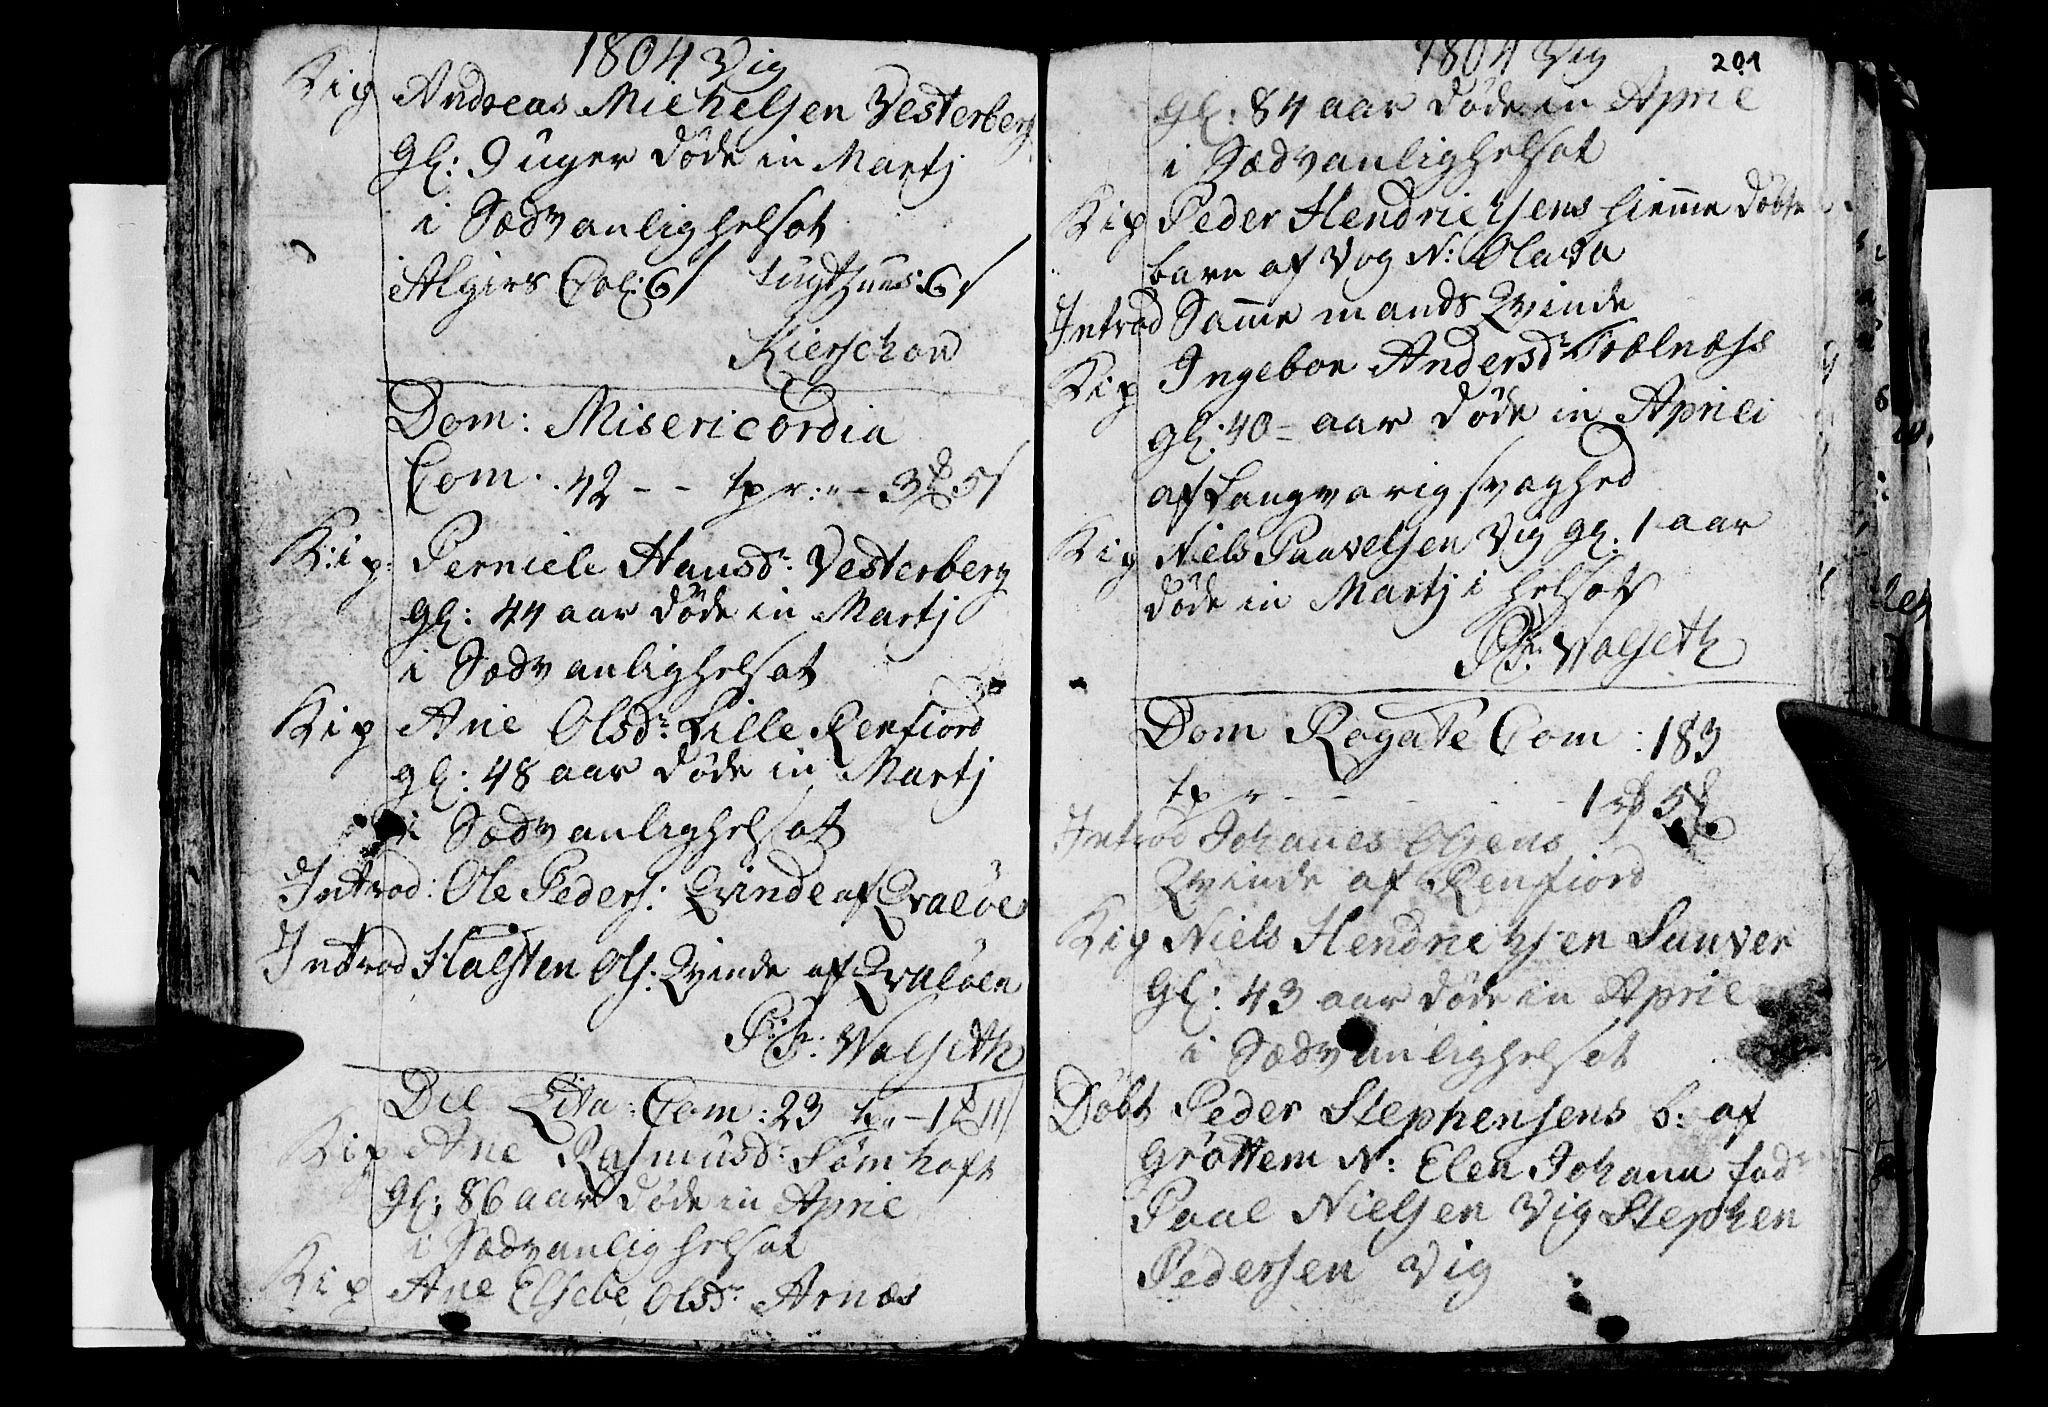 1804 Vig
Kip Andreas Michelsen Vesterberg
gl: 9 uger døde in Martj
i Sædvanlig helsot
Algirs Col: 6 s Tugthuus: 6 s
Kierschow
Dom: Misericordia
Com. 42 - - tpr: - 3 5 s
K:ip: Perniele Hansd: Vesterberg
gl: 44 aar døde in Martj
i Sædvanlig helsot
Kip Ane Olsd: Lille Renfiord
gl: 48 aar døde in Martj
i Sædvanlig helsot
Introd: Ole Peders: Qvinde af Qvaløe
Introd Halsten Ols: Qvinde af Qvaløen
P: Valseth
Die Com: 23 tpr - 1 11
Kip Ane Rasmusd: Sømhoft
gl: 86 aar døde in April
i Sædvanlig helsot
Kip Ane Elsebe Olsd: Arnæs
1804 Vig 201
gl: 84 aar døde in April
i Sædvanlig helsot
Kip Peder Hendrichsens hiemme døbte
barn af Vog N: Olava
Introd Samme mands Qvinde
Kip Ingebor Andersd: Trælnæss
gl: 40 - aar døde in Aprili
af Langvarig svaghed
Kip Niels Paavelsen Vig gl: 1 aar
døde in Martj i helsot
P: Valseth
Dom Rogate Com: 183
tpr - - - 1 rd 5
Introd Johanes Olsens
Qvinde af Renfiord
Kip Niels Hendrichsen Sauver
gl: 43 aar døde in April
i Sædvanlig helsot
Døbt Peder Stephensens b: af
Grøttem N: Elen Johana fad:
Paal Nielsen Vig Stephen
Pedersen Vig